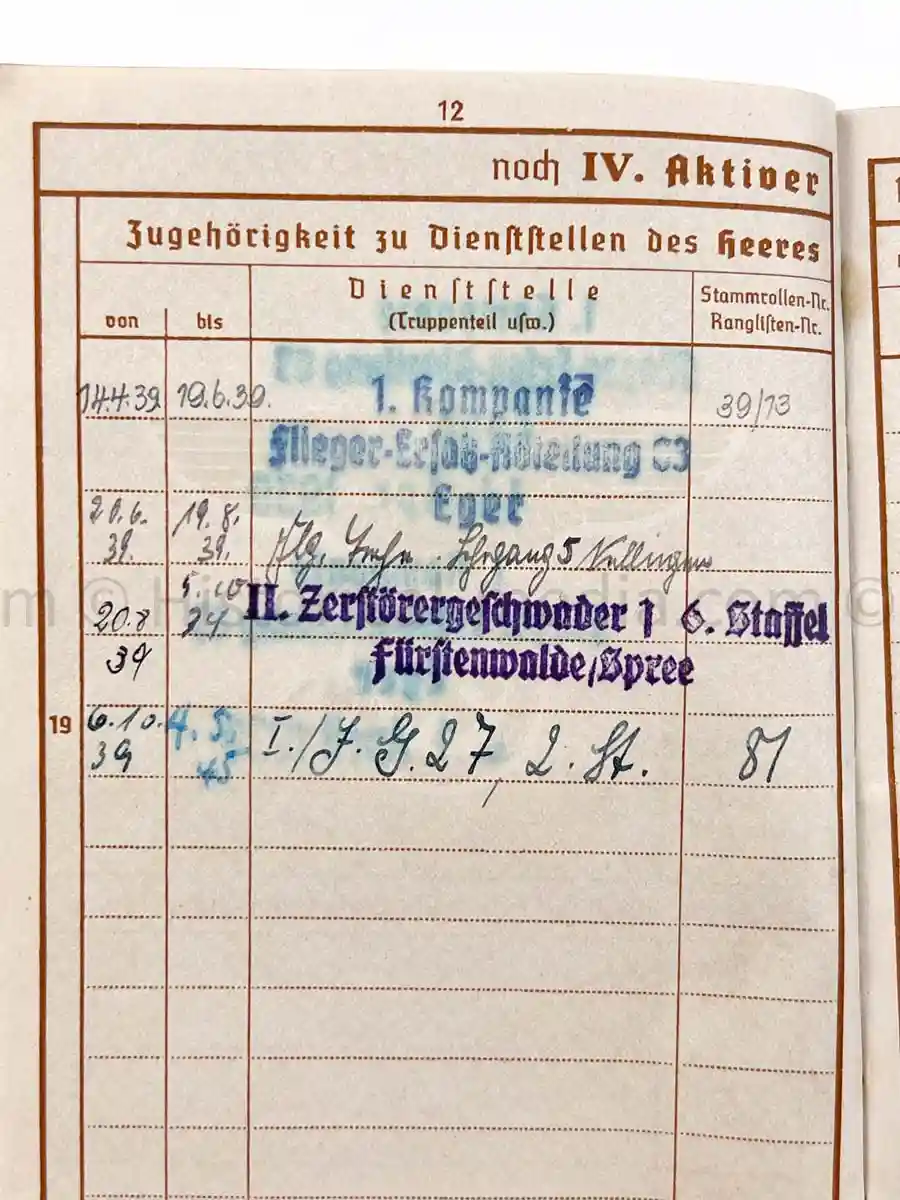 12
noch IV. Aktiver
Zugehörigkeit zu Dienststellen des Heeres
von
bis
Dienststelle
(Truppenteil usw.)
Stammrollen-Nr.
Ranglisten-Nr.
14.4.39 19.6.39. 1. Kompanie 39/13
Flieger-Ersatz-Abteilung 33
Eger
20.6. 19.8.
39. 39. Flg. Lehrgang 5 Nellingen
5.10
20.8 39 II. Zerstörergeschwader 1 6. Staffel
39 Fürstenwalde/Spree
19 6.10. 4.5. I./J.G.27, 2. St. 81
39 45